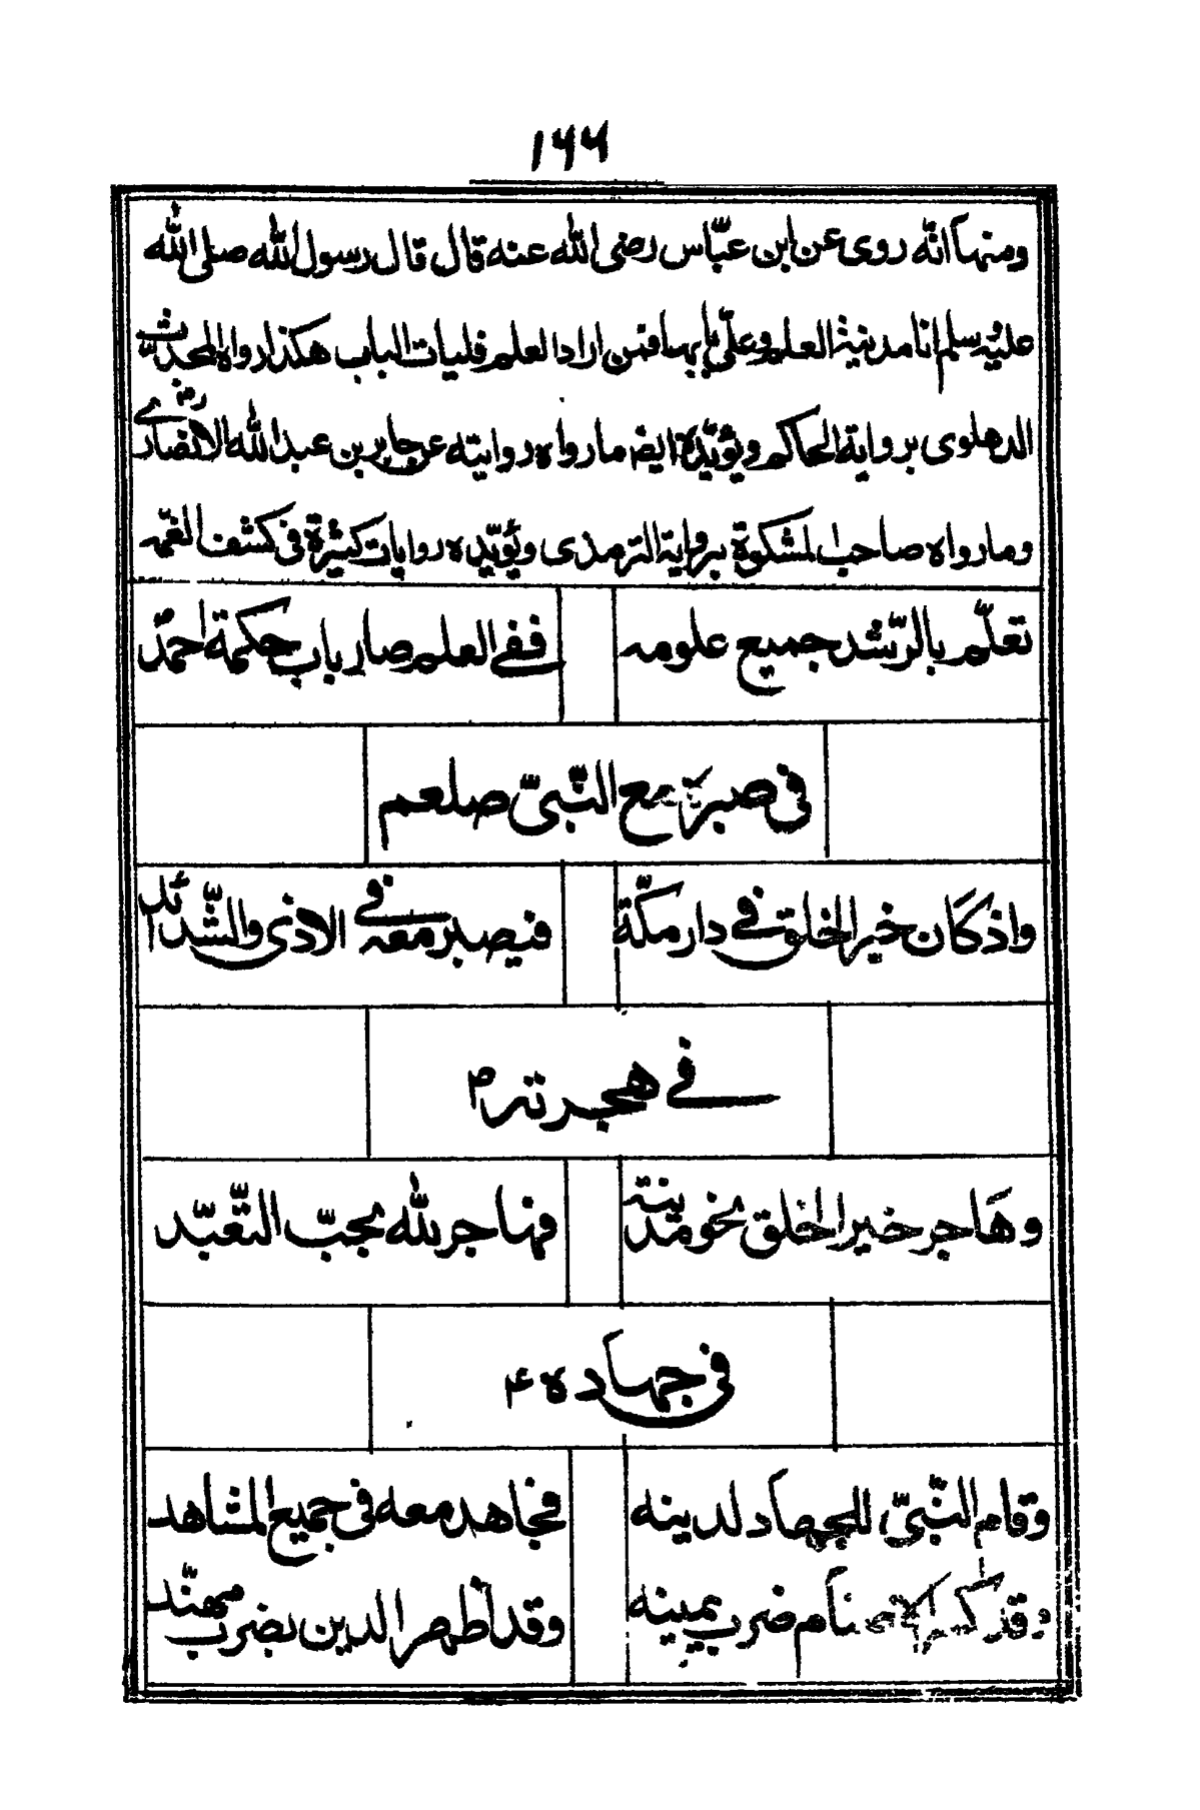 ۱۶۶
ومنها انّه روى عن ابن عبّاس رضى الله عنه قال قال رسول الله صلى الله
عليه وسلم انا مدينة العلم وعلىّ بابها فمن اراد العلم فليات الباب هكذا رواه المحدّث
الدهلوى برواية الحاكم ويؤيّده ايضا ما رواه روايته عن جابر بن عبد الله الانصارى رض
وما رواه صاحب المشكوة برواية الترمذى ويؤيّده روايات كثيرة فى كشف الغمّه
تعلّم بالرّشد جميع علومه ففى العلم صار باب حكمة احمدٌ
فى صبره مع النّبىّ صلعم
واذ كان خير الخلق فى دار مكّة فيصبر معه فى الاذى والشّدائد
فى هجرته ۴
وهاجر خير الخلق نحو مدينة فهاجر لله بحبّ التّعبّد
فى جهاده ۴
وقام النّبىّ للجهاد لدينه فجاهد معه فى جميع المشاهد
وقد كسر الاصنام ضرب يمينه وقد اظهر الدين بضرب مهنّد